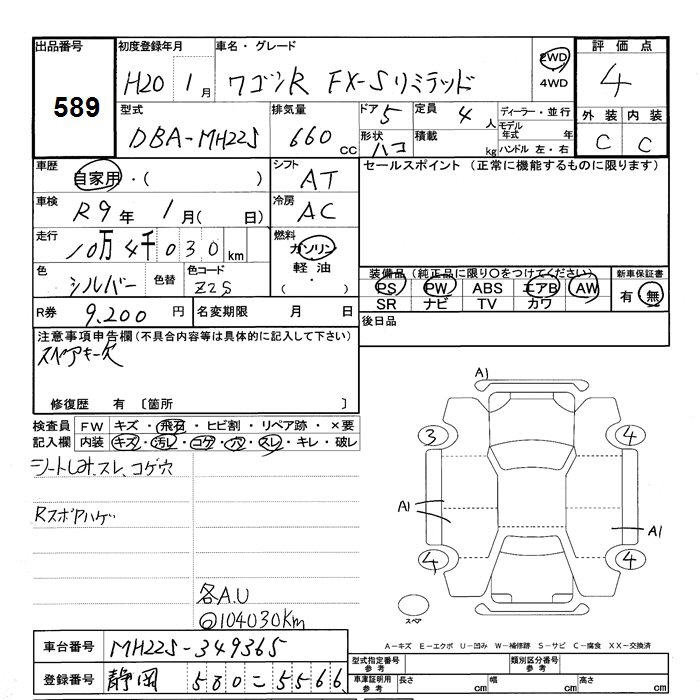 出品番号
589
初度登録年月
H20 1月
車名・グレード
ワゴンR FX-Sリミテッド
2WD
・
4WD
評価点
4
型式
DBA-MH22S
排気量
660 cc
ドア 5
形状 ハコ
定員 4 人
積載 kg
ディーラー・並行
モデル年式 年
ハンドル 左・右
外装 内装
C C
車歴
自家用・( )
シフト
AT
セールスポイント(正常に機能するものに限ります)
車検
R9年 1月( 日)
冷房
AC
走行
10万4千030km
燃料
ガソリン
軽油
( ・ )
色
シルバー
色替
色コード
Z2S
装備品(純正品に限り○をつけてください)
PS PW ABS エアB AW
SR ナビ TV カワ
新車保証書
有・無
R券 9,200円
名変期限 月 日
後日品
注意事項申告欄(不具合内容等は具体的に記入して下さい)
スペアキー欠
修復歴 有 〔箇所 〕
検査員
記入欄
FW キズ・飛石・ヒビ割・リペア跡・×要
内装 キズ・汚レ・コゲ・穴・スレ・キレ・破レ
シートしみ、スレ、コゲ穴
Rスポアハゲ
各A.U
@104030Km
A1
3
4
A1
A1
4
4
スペア
A-キズ E-エクボ U-凹み W-補修跡 S-サビ C-腐食 XX-交換済
車台番号 MH22S-349365
登録番号 静岡 580こ5566
型式指定番号
参考
類別区分番号
参考
車庫証明用
参考
長さ cm
幅 cm
高さ cm